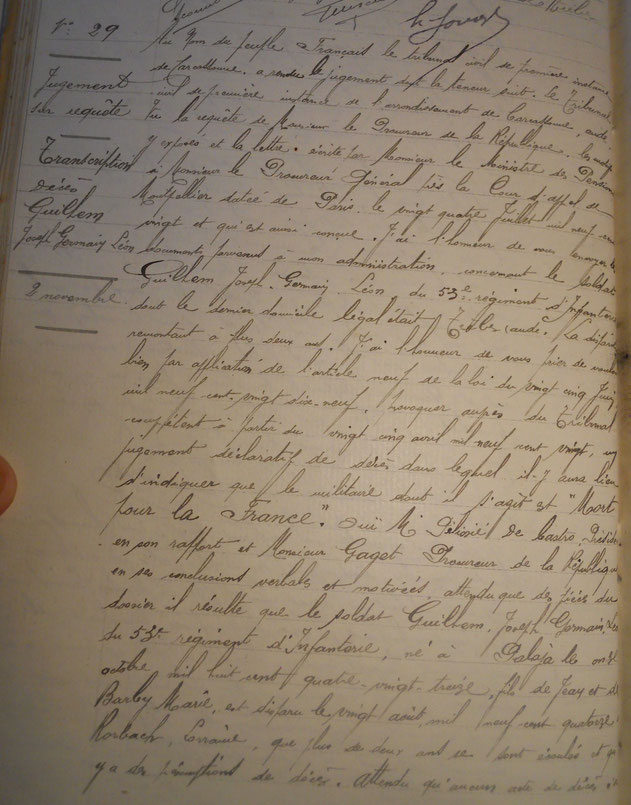 N° 29
Jugement
sur requête
Transcription
décès
Guilhem
Joseph Germain Léon
2 novembre.
Au Nom du peuple Français le tribunal civil de première instance
de Carcassonne, a rendu le jugement dont la teneur suit. Le Tribunal
civil de première instance de l'arrondissement de Carcassonne, aude.
Vu la requête de Monsieur le Procureur de la République, les motifs
y exposés et la lettre, écrite par Monsieur le Ministre des Pensions
à Monsieur le Procureur Général près la Cour d'appel de
Montpellier datée de Paris, le vingt quatre Juillet mil neuf cent
vingt et qui est ainsi conçue. J'ai l'honneur de vous envoyer les
documents parvenus à mon administration, concernant le soldat
Guilhem Joseph, Germain Léon du 53e régiment d'Infanterie
dont le dernier domicile légal était (aude. La dispari
remontant à plus deux ans. J'ai l'honneur de vous prier de vouloir
bien par application de l'article neuf de la loi du vingt cinq Juin
mil neuf cent. vingt dix-neuf, provoquer auprès du Tribunal
compétent à partir du vingt cinq avril mil neuf cent vingt, un
jugement déclaratif de décès dans lequel il y aura lieu
d'indiquer que le militaire dont il s'agit est "Mort
pour la France". Ouï M. de Castro, Président
en son rapport et Monsieur Gaget Procureur de la République
en ses conclusions verbales et motivées, attendu que des pièces du
dossier il résulte que le soldat Guilhem, Joseph Germain, Léon
du 53e régiment d'Infanterie, né à Palaja le onze
octobre mil huit cent quatre-vingt-treize, fils de Jean et de
Barbey Marie, est disparu le vingt août mil neuf cent quatorze à
Rorbach, Lorraine, que plus de deux ans se sont écoulés et qu'il
y a des présomptions de décès. Attendu qu'aucun acte de décès